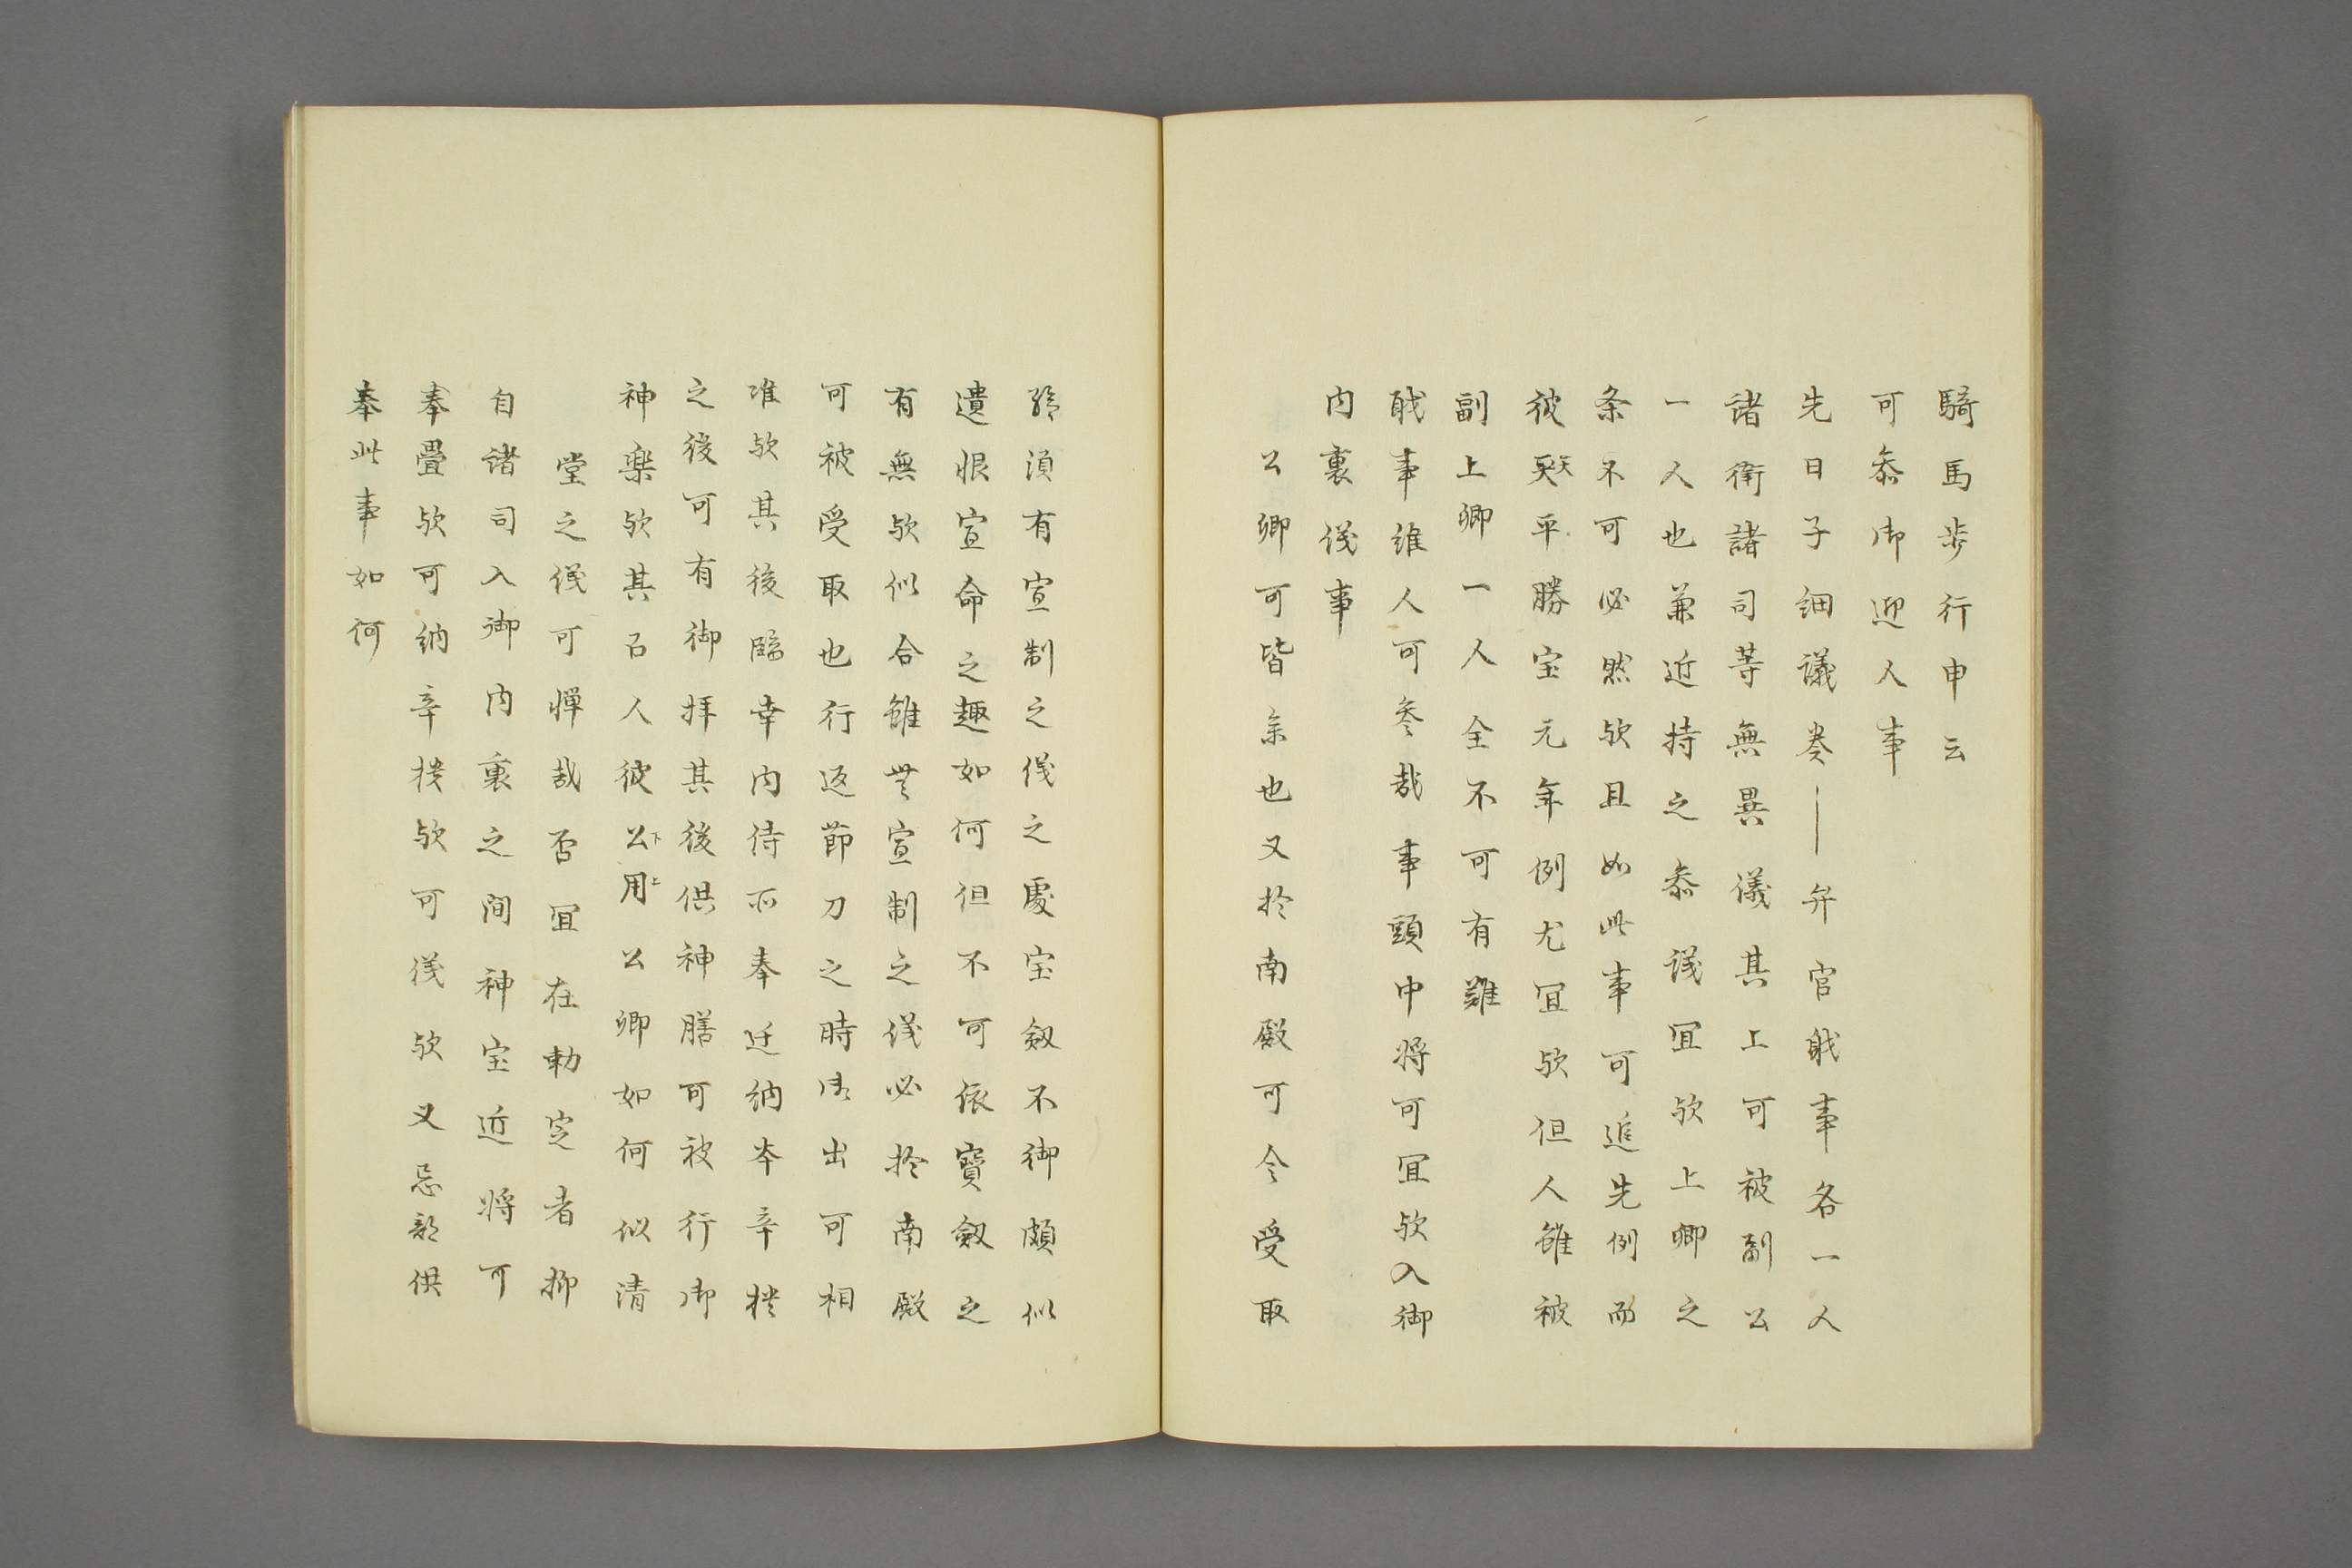 騎馬歩行申云
可参御迎人事
先日子細議奏――弁官職事各一人
諸衛諸司等無異儀其上可被副公
一人也兼近持之参議宜欤上卿之
条不可必然欤且如此事可追先例而
彼天平勝宝元年例尤宜欤但人雖被
副上卿一人全不可有難
職事誰人可参哉事頭中将可宜欤入御
内裏儀事
公卿可皆参也又於南殿可令受取
給須有宣制之儀之處宝剱不御頗似
遺恨宣命之趣如何但不可依寶剱之
有無欤似合雖無宣制之儀必於南殿
可被受取也行返節刀之時御出可相
准欤其後臨幸内侍所奉迁納本辛櫃
之後可有御拝其後供神膳可被行御
神楽欤其召人彼公下用上公卿如何似清
堂之儀可憚哉否宜在勅定者抑
自諸司入御内裏之間神宝近将可
奉疊欤可納辛櫃欤可儀欤又忌部供
奉此事如何